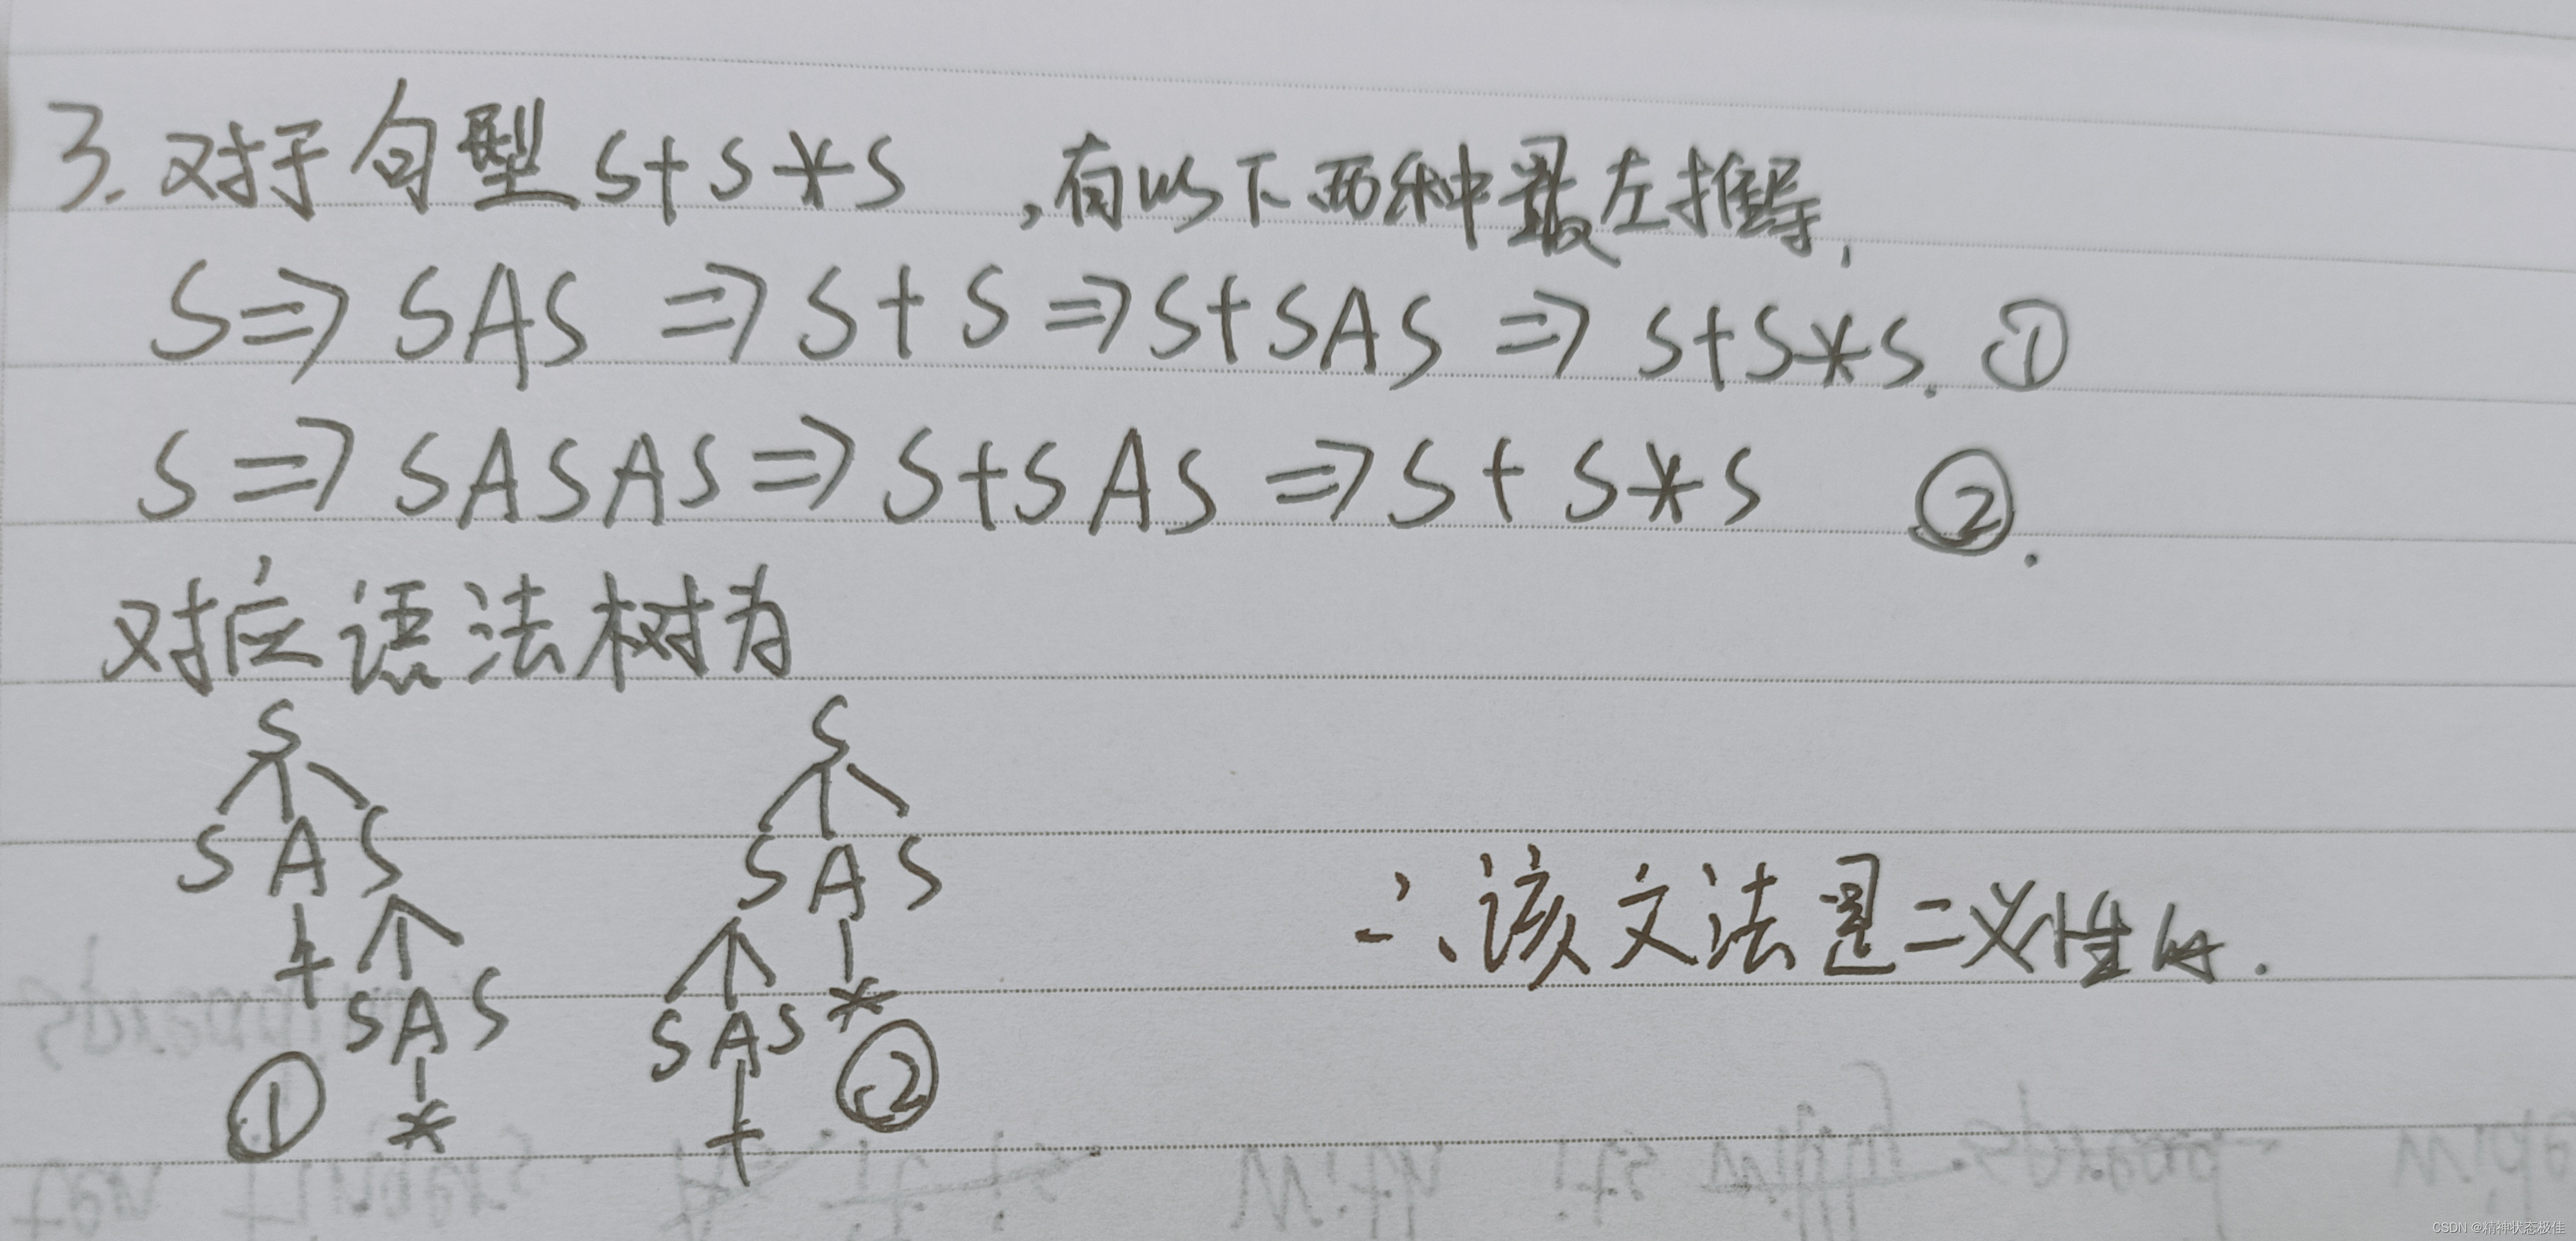 3. 对于句型 S+S*S ,有以下两种最左推导,
S⇒SAS ⇒S+S⇒S+SAS ⇒ S+S*S. ①
S⇒SASAS⇒S+SAS ⇒S+S*S ②.
对应语法树为
S
S A S
+
S A S
*
①
S
S A S
*
S A S
+
②
∴该文法是二义性的.
CSDN @精神状态极佳